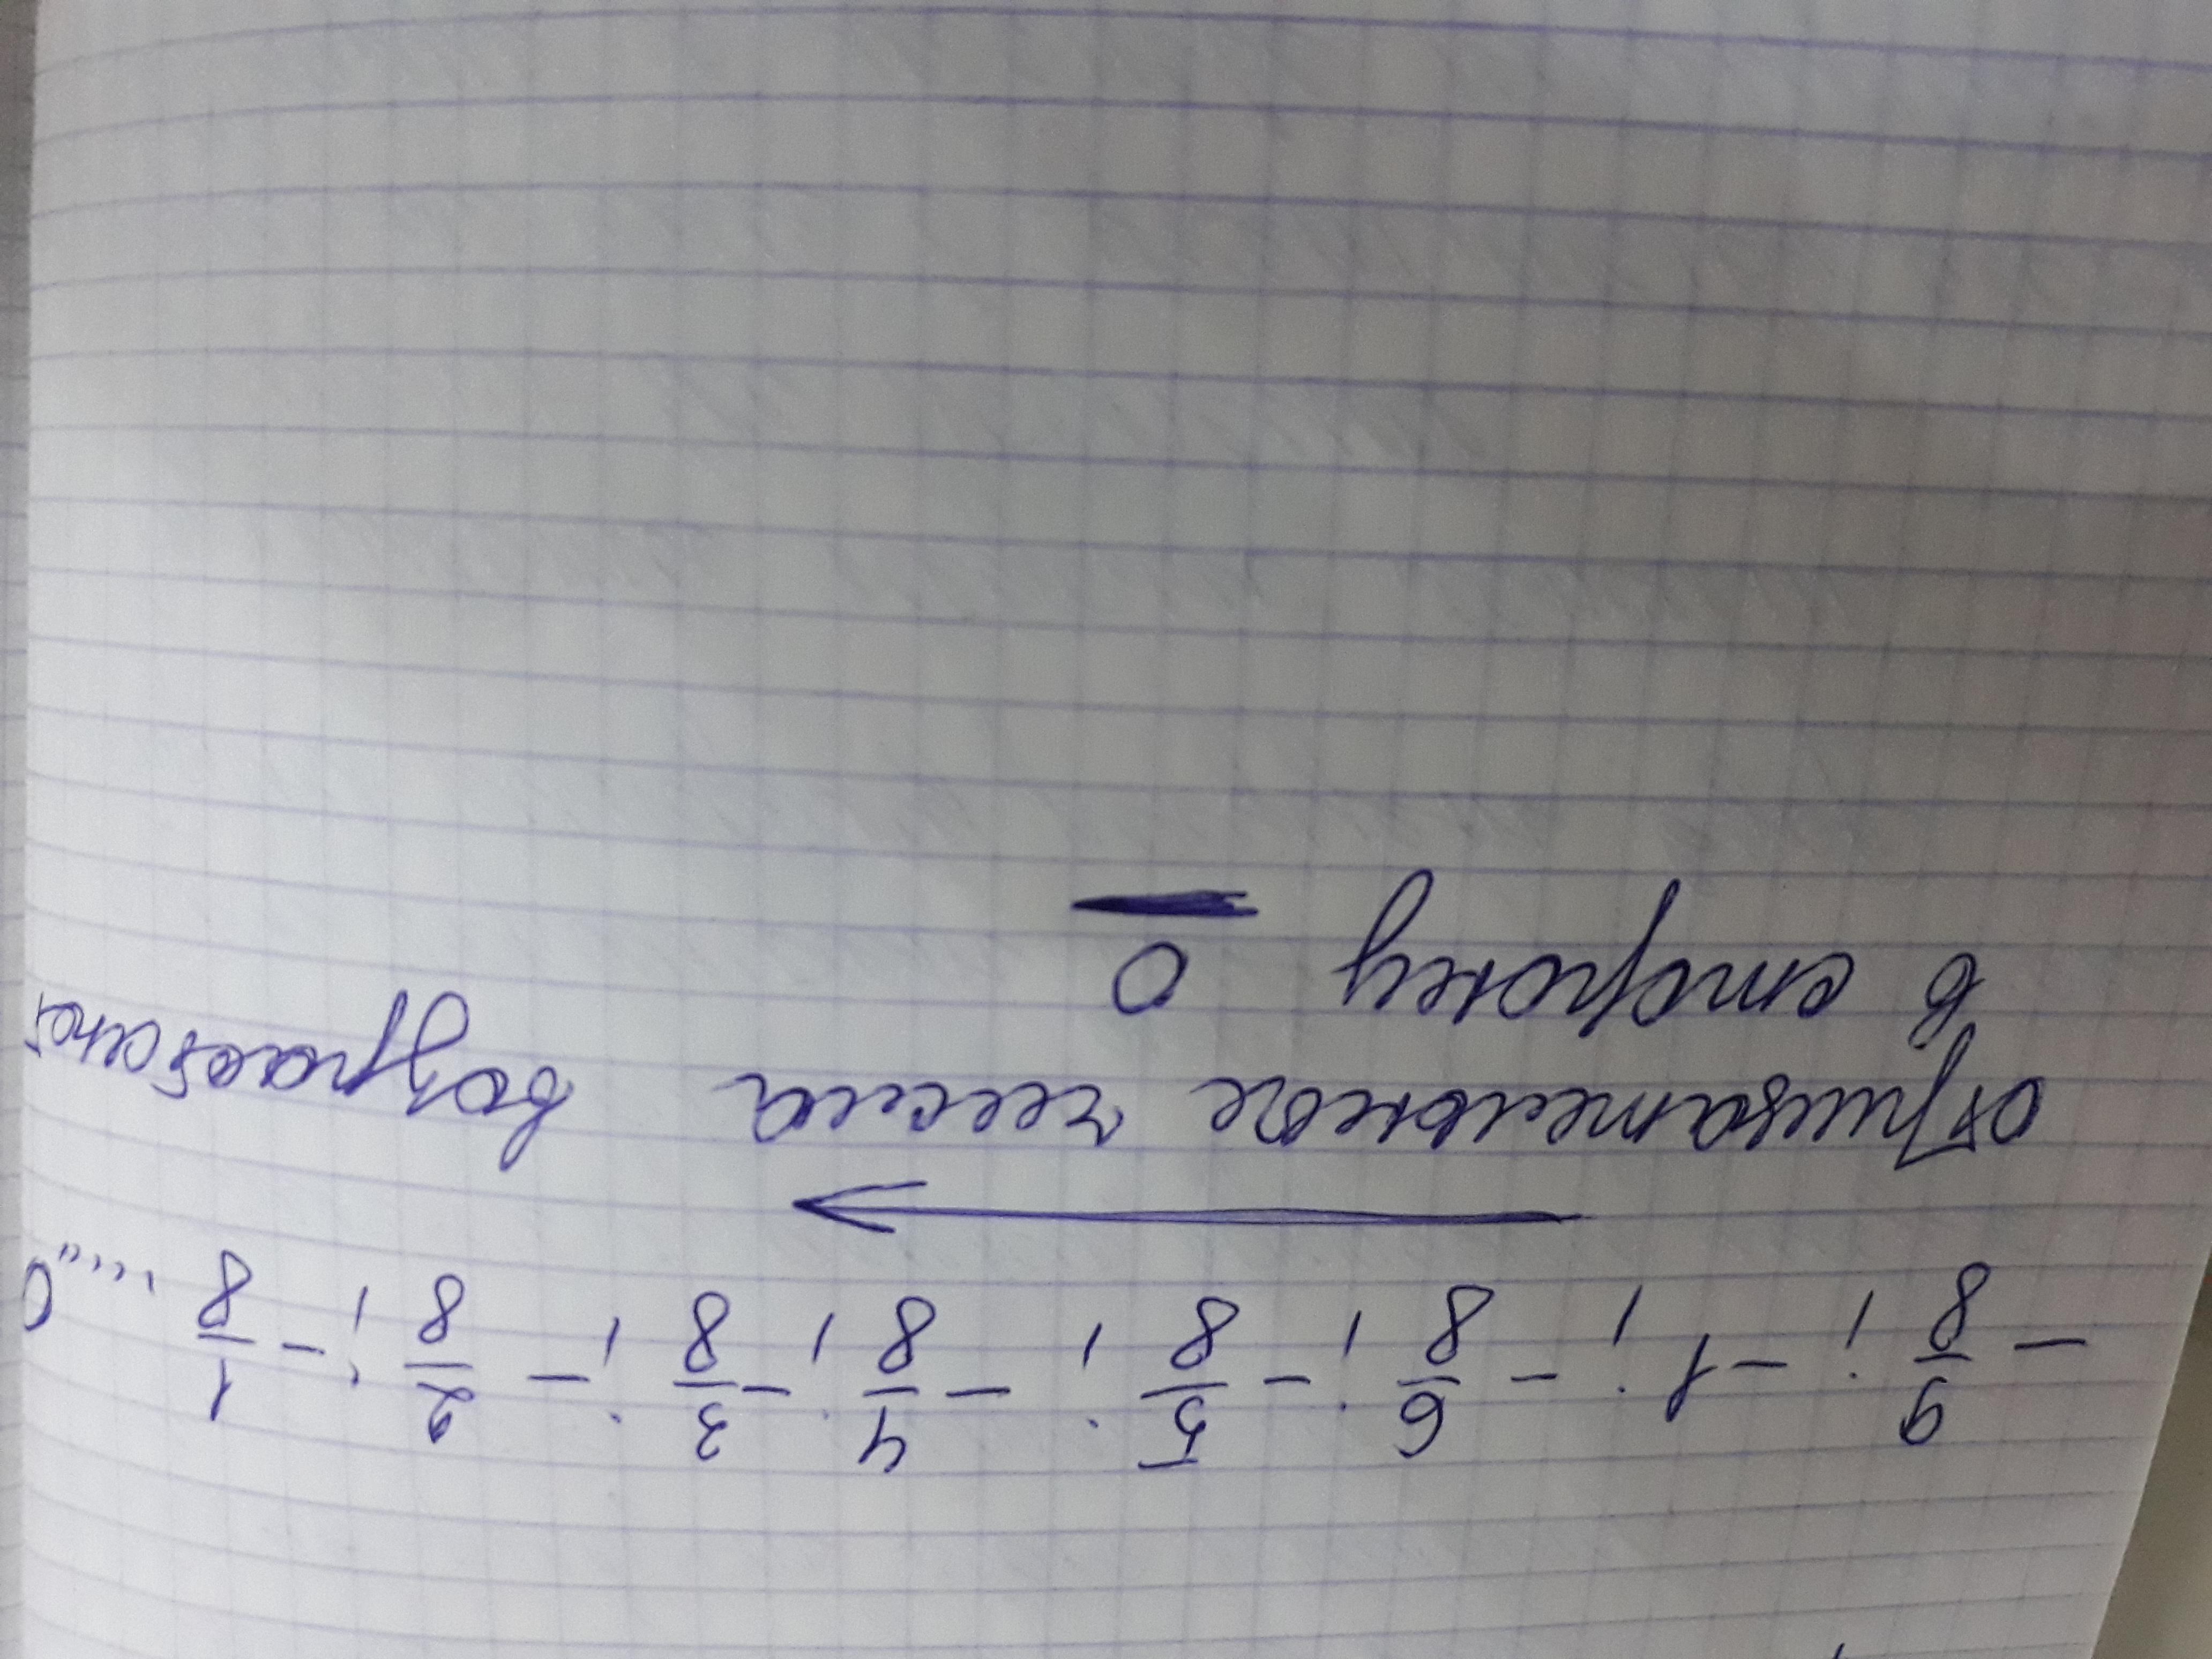 - 9/8; -1; - 6/8; - 5/8; - 4/8; - 3/8; - 2/8; - 1/8 ..... 0
отрицательные числа возрастают
в сторону 0